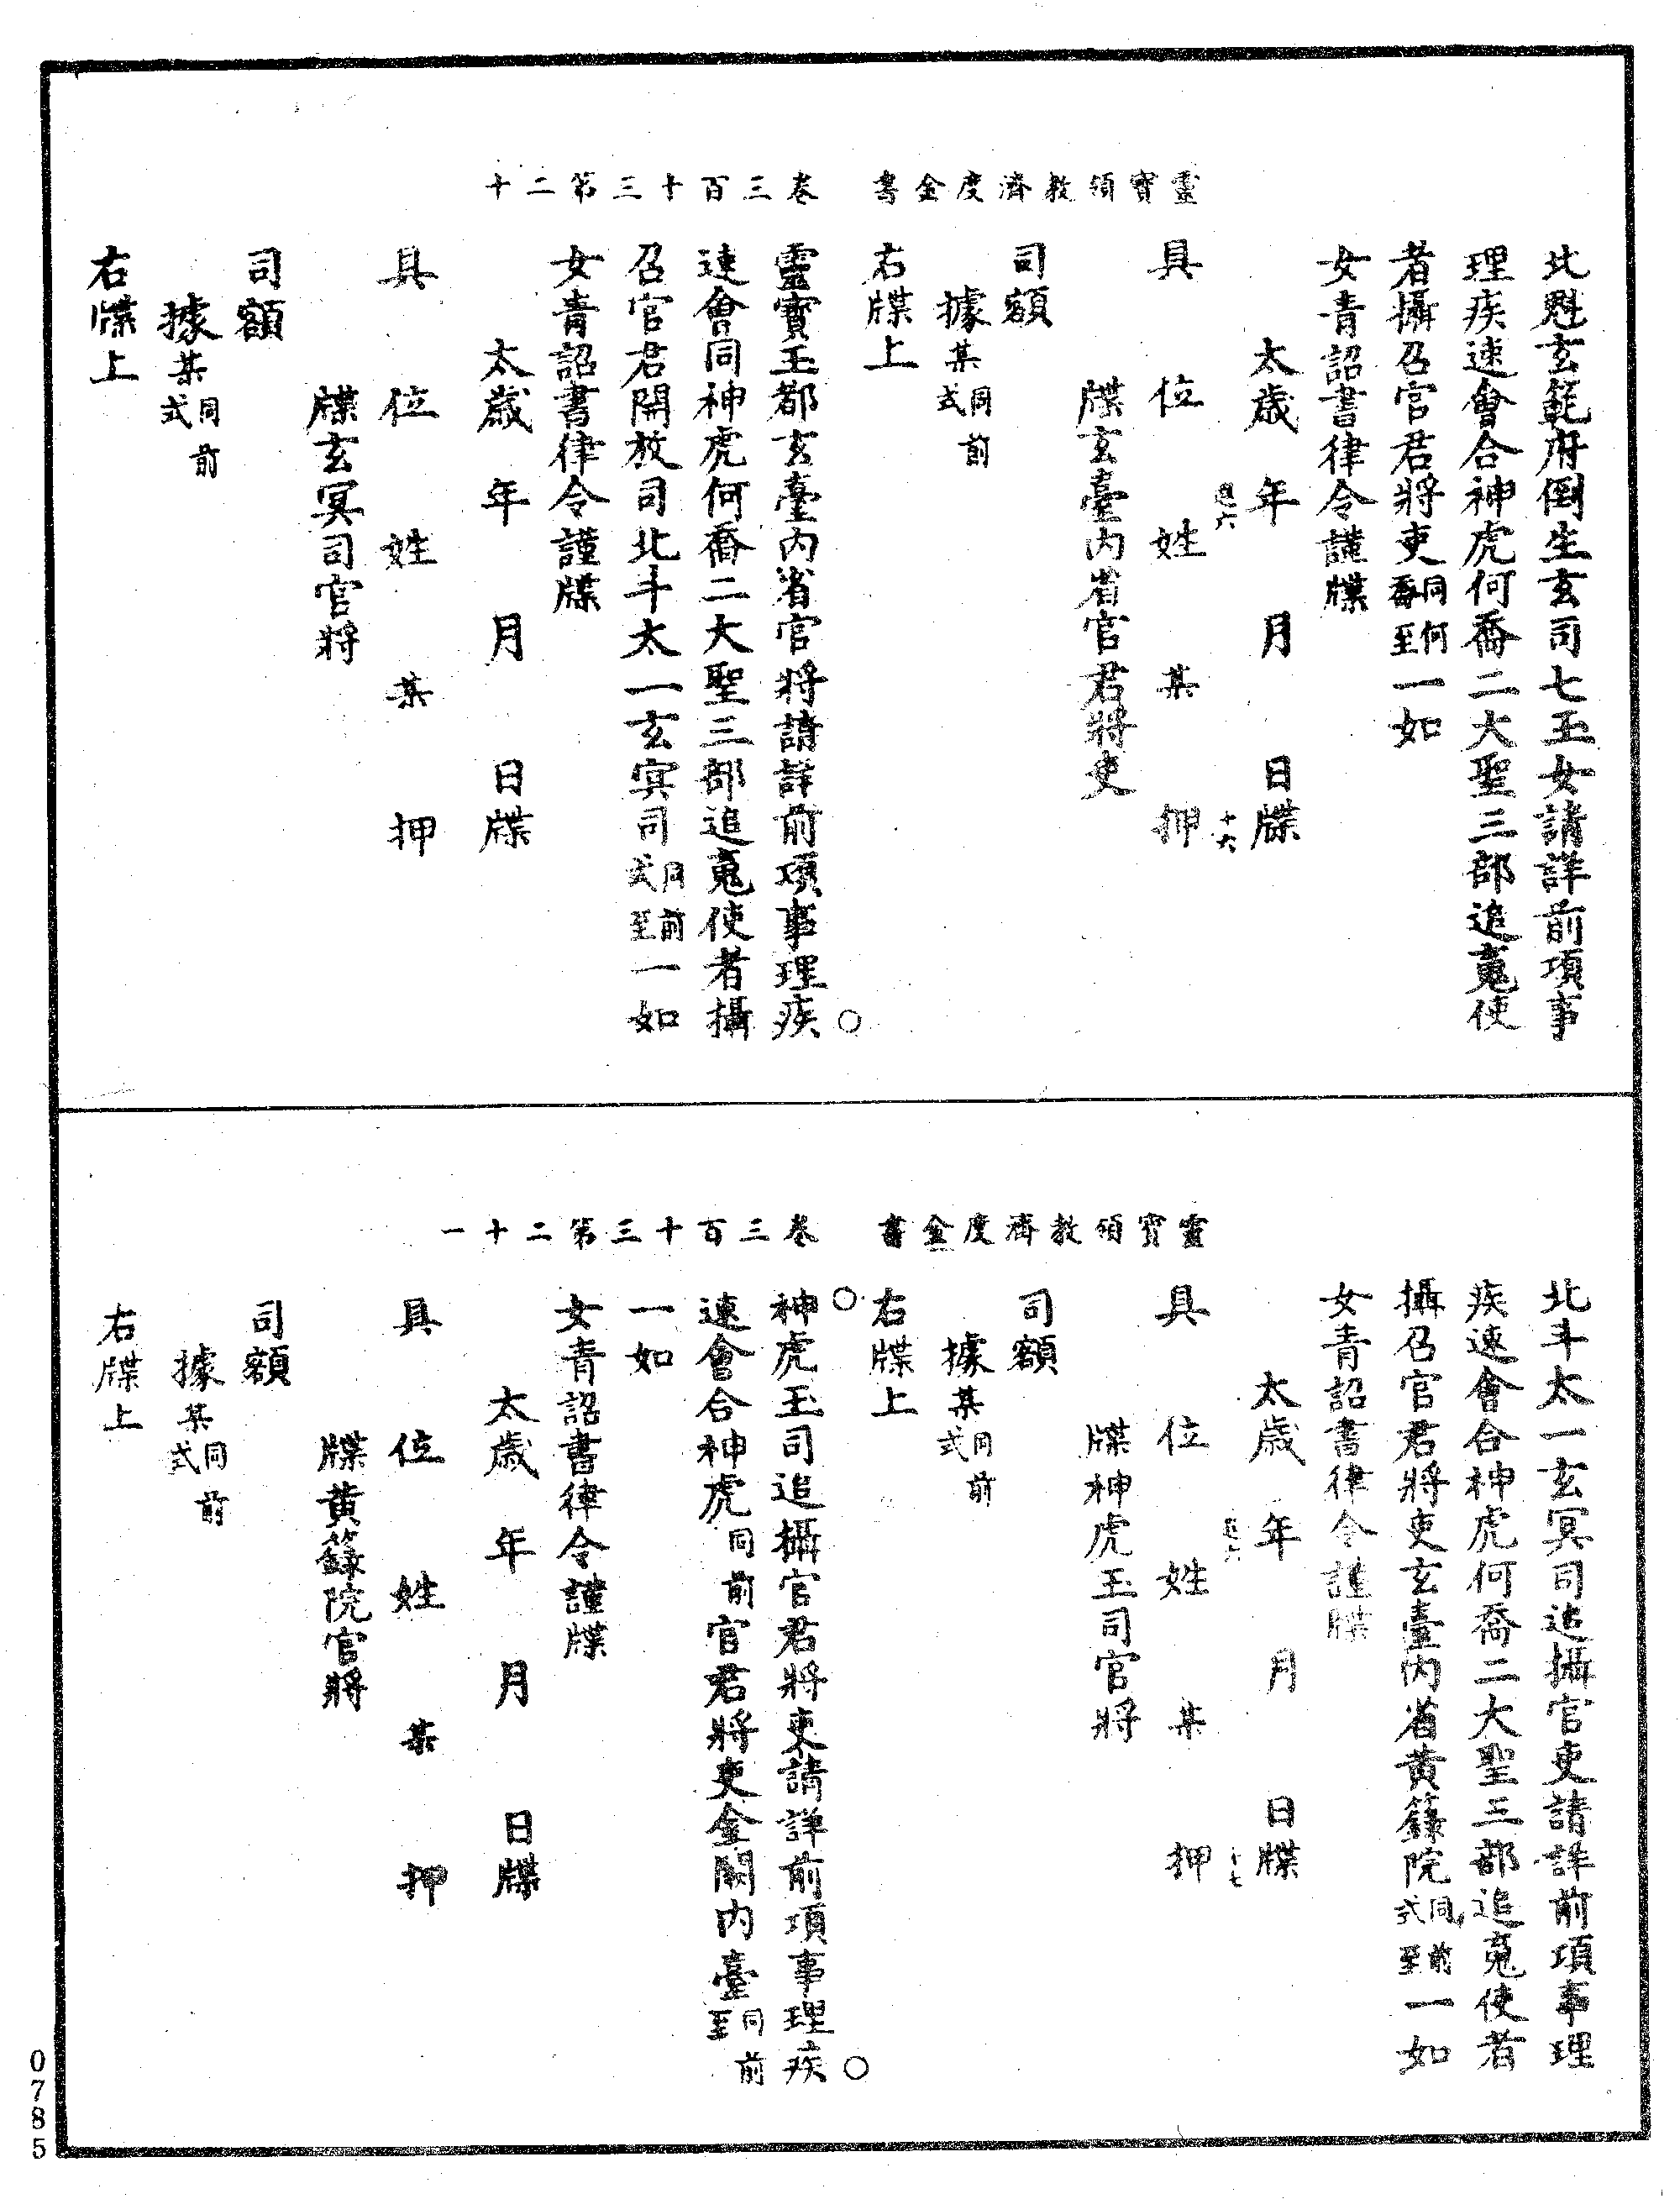 靈寶領教濟度金書　卷三百十三第二十
北魁玄範府倒生玄司七玉女請詳前項事
理疾速會合神虎何喬二大聖三部追䰟使
者攝召官君將吏同何喬至一如
女青詔書律令謹牒
太歲　年　月　日牒
十六
具　位　姓　某　押
牒玄臺內省官君將吏
司額
據某同前式
右牒上
靈寶玉都玄臺內省官將請詳前項事理疾
速會同神虎何喬二大聖三部追䰟使者攝
召官君開放司北斗太一玄冥司同前式至一如
女青詔書律令謹牒
太歲　年　月　日牒
具　位　姓　某　押
牒玄冥司官將
司額
據某同前式
右牒上
靈寶領教濟度金書　卷三百十三第二十一
北斗太一玄冥司追攝官吏請詳前項事理
疾速會合神虎何喬二大聖三部追䰟使者
攝召官君將吏玄臺內省黃籙院同前式至一如
女青詔書律令謹牒
太歲　年　月　日牒
十七
具　位　姓　某　押
牒神虎玉司官將
司額
據某同前式
右牒上
神虎玉司追攝官君將吏請詳前項事理疾
速會合神虎同前官君將吏金闕內臺同前至
一如
女青詔書律令謹牒
太歲　年　月　日牒
具　位　姓　某　押
牒黃籙院官將
司額
據某同前式
右牒上
0785